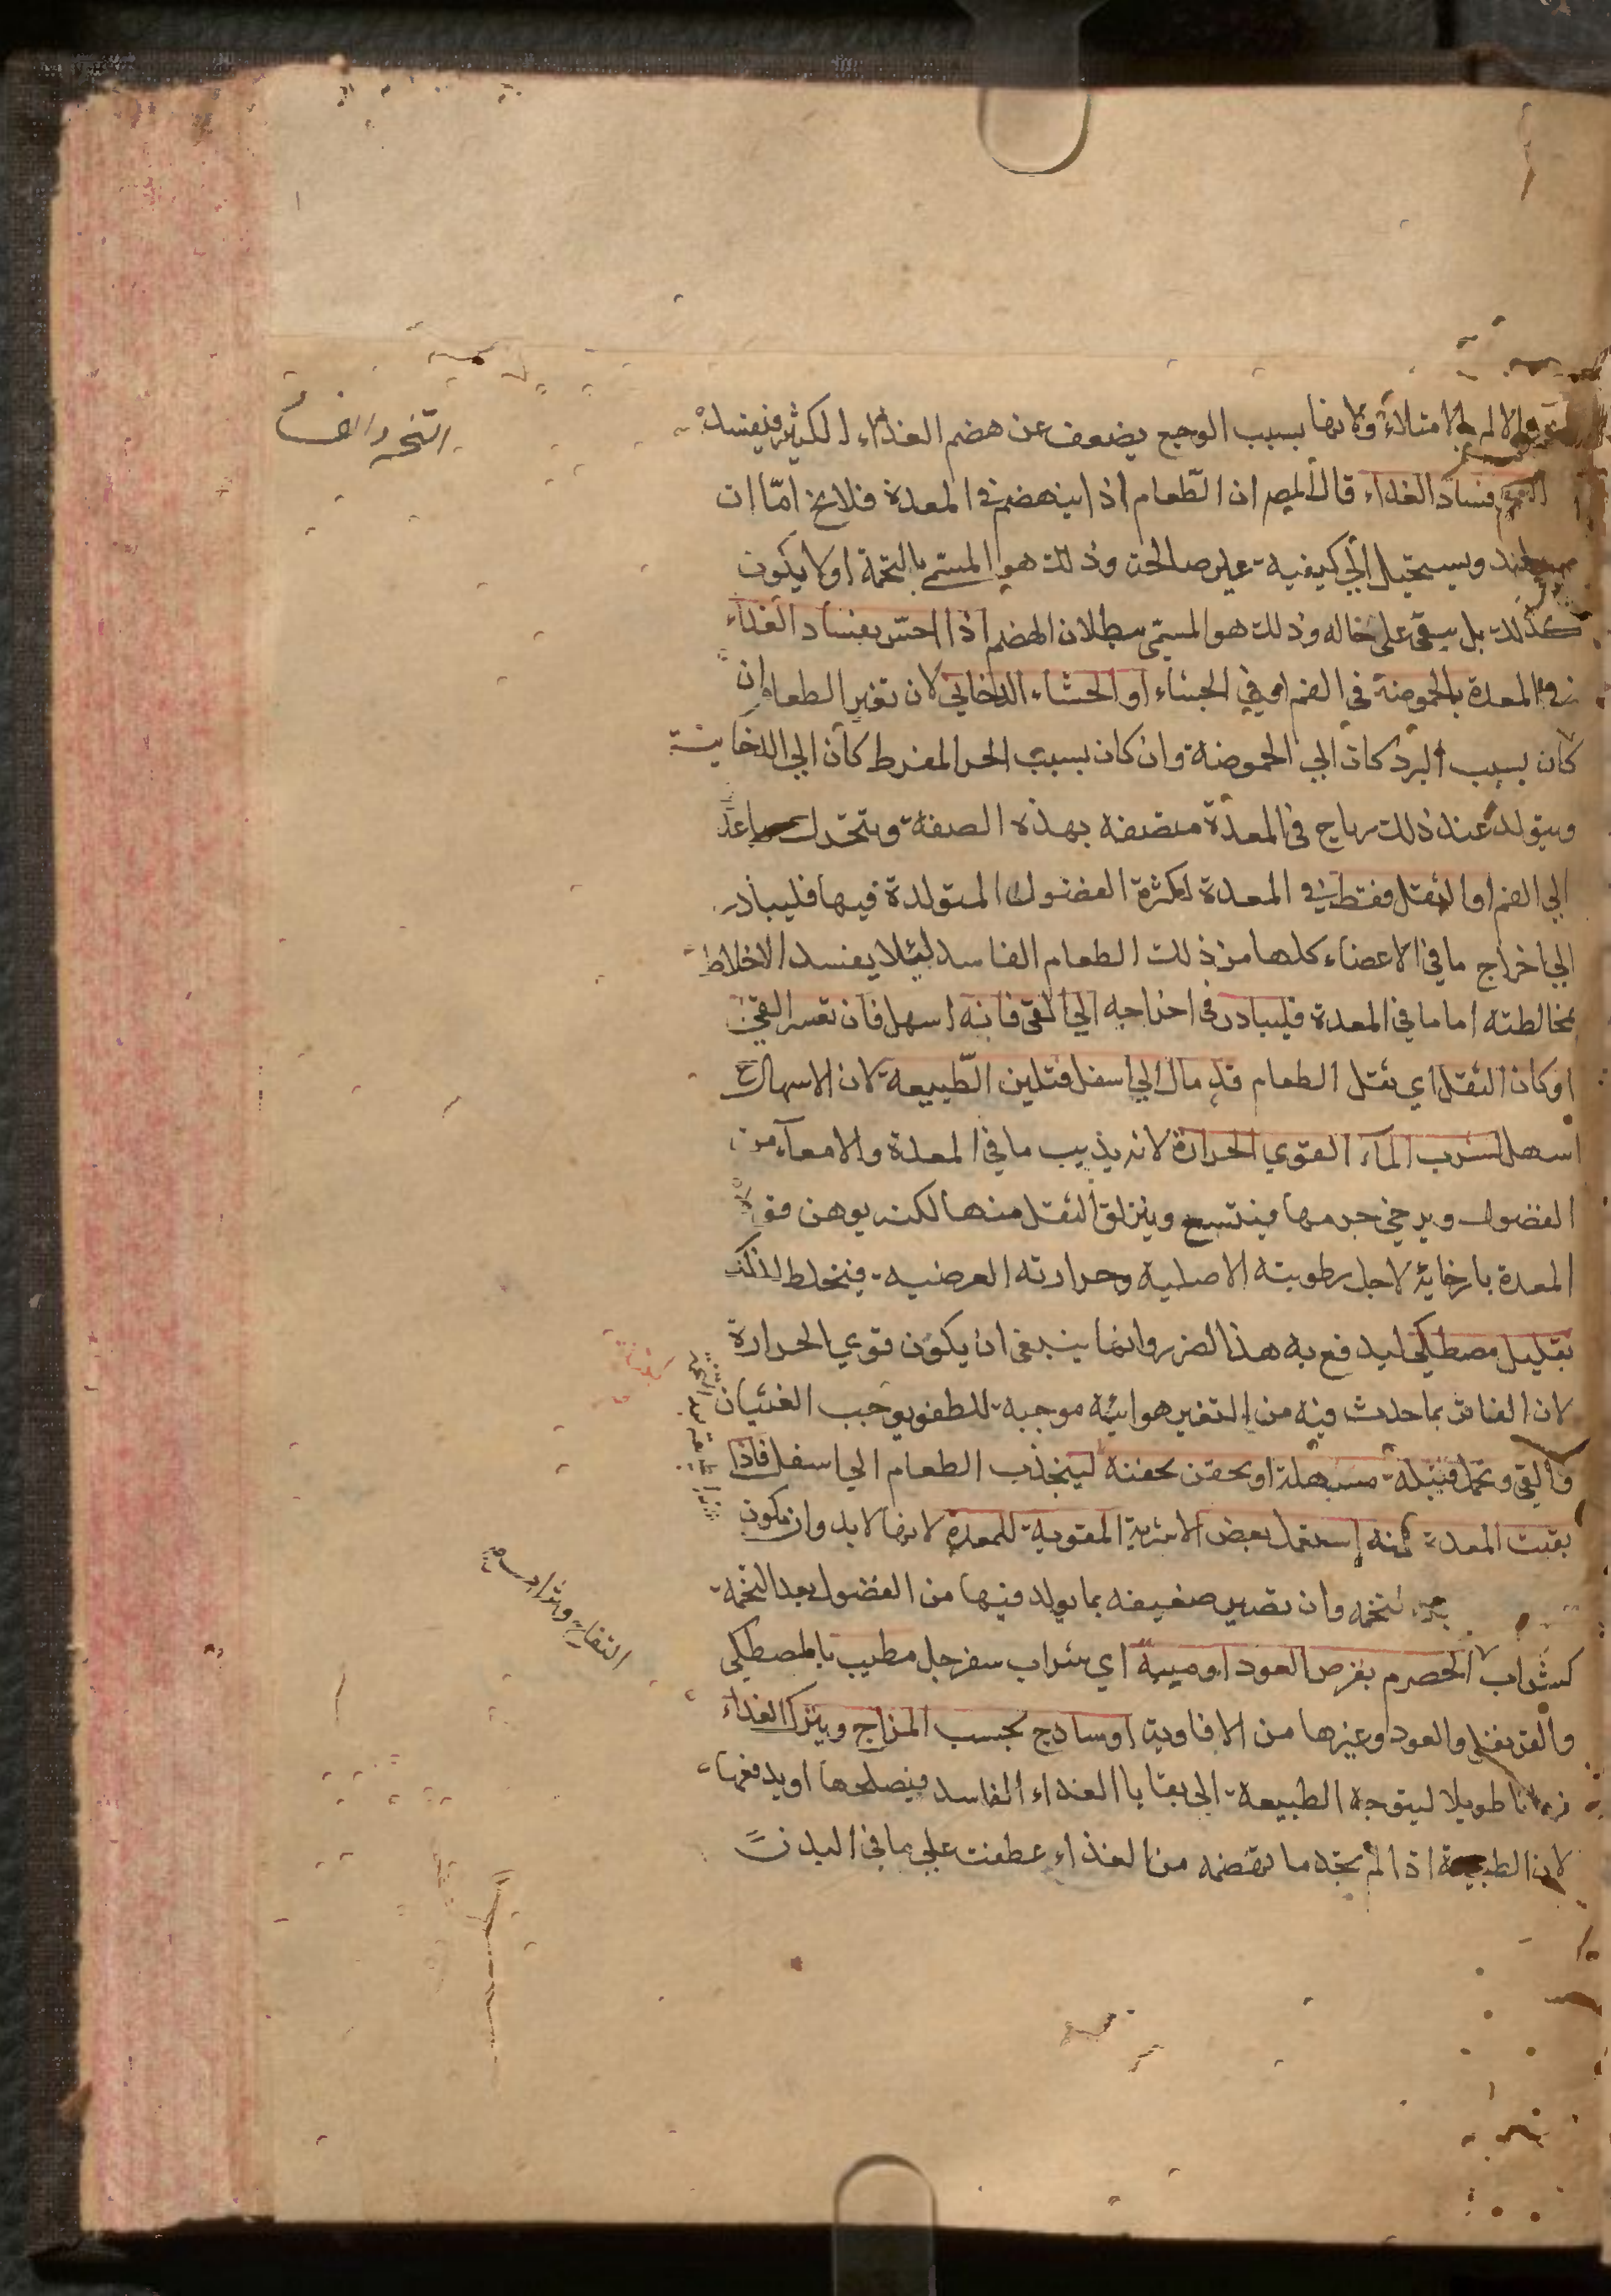 والالم بالامتلاء ولانها بسبب الوجع يضعف عن هضم الغذاء الكثير فيفسد
فساد الغذاء قال المص ان الطعام اذا لم ينهضم في المعدة فلا يخ اما ان
يفسد ويستحيل الي كيفية غير صالحة وذلك هو المسمي بالتخمة او لا يكون
كذلك بل يبقي على حاله وذلك هو المسمى ببطلان الهضم اذا احس بفساد الغذاء
في المعدة بالحموضة في الفم او في الجشاء او الجشاء الدخاني لان تغير الطعام ان
كان بسبب البرد كان الي الحموضة وان كان بسبب الحر المفرط كان الي الدخانية
ويتولد عند ذلك رياح في المعدة متصفة بهذه الصفة ويتحرك صاعدة
الي الفم او الثقل فقط في المعدة لكثرة الفضول المتولدة فيها فليبادر
الي اخراج ما في الاعضاء كلها من ذلك الطعام الفاسد لئلا يفسد الاخلاط
بمخالطته اما ما في المعدة فليبادر في اخراجه الي القي فانه اسهل فان تعسر القي
او كان الثقل اي ثقل الطعام قد مال الي اسفل فتليين الطبيعة لان الاسهال ح
اسهل بشرب الماء القوي الحرارة لانه يذيب ما في المعدة والامعاء من
الفضول ويرخي جرمها فيتسع وينزلق الثقل منها لكنه يوهن قوة
المعدة بارخائه لاجل رطوبته الاصلية وحرارته العرضية فيخلط لذلك
بقليل مصطكي ليدفع به هذا الضرر وانما ينبغي ان يكون قوي الحرارة
لان الفاتر بما حدث فيه من التغير هوائية موجبة للطفو يوجب الغثيان
والقي وتحمل فتيلة مسهلة او يحقن بحقنة لينجذب الطعام الي اسفل فاذا
نقيت المعدة منه استعمل بعض الاشربة المقوية للمعدة لانها لا بد وان يكون
تخمه وان تصير ضعيفه بما يولد فيها من الفضول بعد التخمة
كشراب الحصرم بقرص العود او ميبه اي شراب سفرجل مطيب بالمصطكي
والقرنفل والعود وغيرها من الافاوية او ساذج بحسب المزاج ويترك الغذاء
زمانا طويلا ليتوجه الطبيعة الى بقايا الغذاء الفاسد فيصلحها او يدفعها
لان الطبيعة اذا لم تجد ما تهضمه من الغذاء عطفت علي ما في البدن